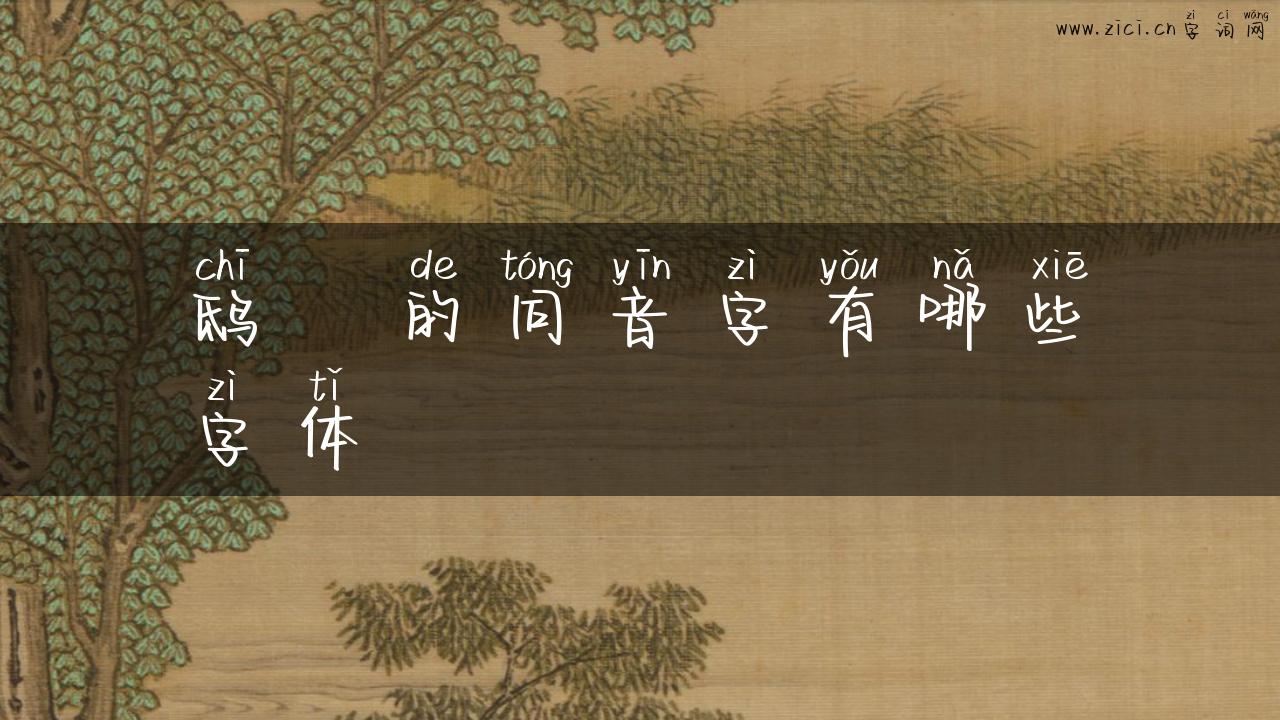 zì cí wǎng
www.zici.cn 字词网
chī de tóng yīn zì yǒu nǎ xiē
鸱 的同音字有哪些
zì tǐ
字体